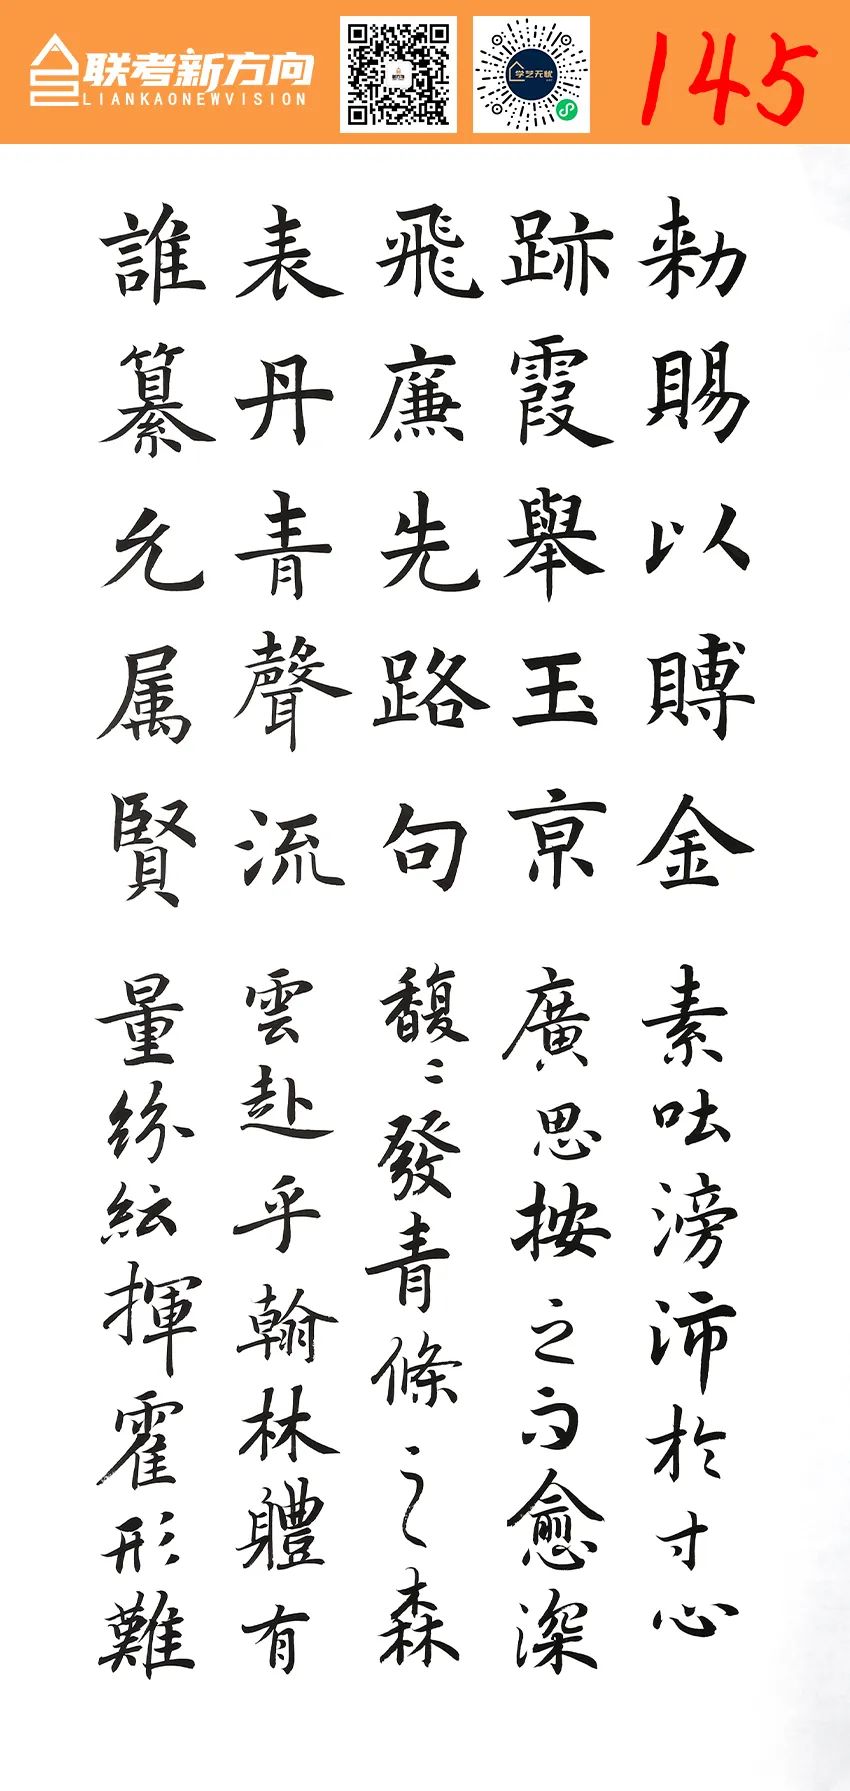 联考新方向
LIANKAONEWVISION
学艺无忧
145
勑賜以賻金
跡霞舉玉亰
飛廉先路句
表丹青聲流
誰纂允属賢
素吐滂沛於寸心
廣思按之而愈深
馥〻發青條之森
雲赴乎翰林體有
量紛紜揮霍形難